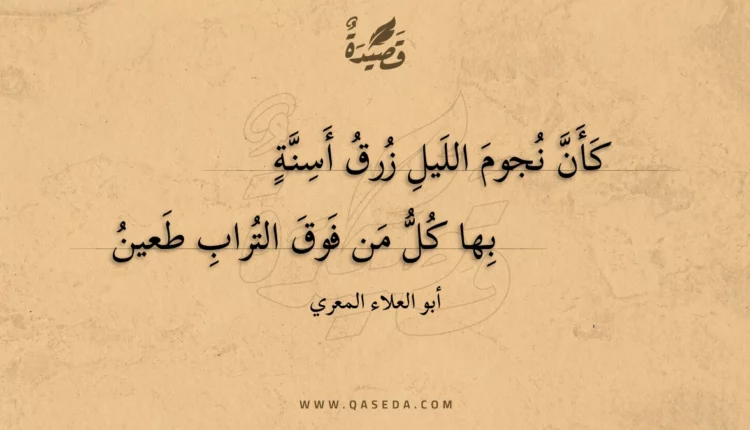 قَصِيدَةٌ
كَأَنَّ نُجومَ اللَيلِ زُرقُ أَسِنَّةٍ
بِها كُلُّ مَن فَوقَ التُرابِ طَعينُ
أبو العلاء المعري
WWW.QASEDA.COM